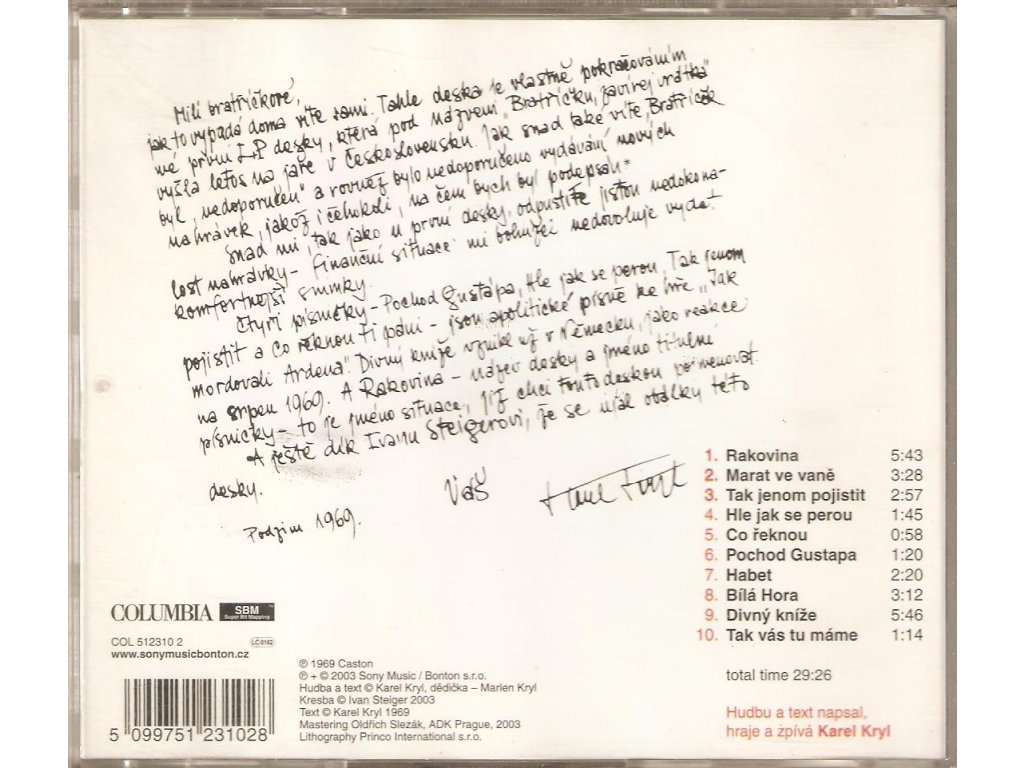 Milí bratříčkové,
jak to vypadá doma víte sami. Tahle deska je vlastně pokračováním
mé první LP desky, která pod názvem „Bratříčku, zavírej vrátka"
vyšla letos na jaře v Československu. Jak snad také víte, Bratříček
byl „nedoporučen" a rovněž bylo nedoporučeno vydávání nových
nahrávek, jakož i čehokoli, na čem bych byl podepsán.
Snad mi, tak jako u první desky, odpustíte jistou nedokona-
lost nahrávky – finanční situace mi bohužel nedovoluje vydat
komfortnější snímky.
Čtyři písničky – Pochod Gustapa, Hle jak se perou, Tak jenom
pojistit a Co řeknou tři páni – jsou apolitické písně ke hře „Jak
mordovali Ardena". Divný kníže vznikl už v Německu, jako reakce
na srpen 1969. A Rakovina – název desky a jméno titulné
písničky – to je jméno situace, jíž chci touto deskou pojmenovat.
A ještě dík Ivanu Steigerovi, že se ujal obálky této
desky.
Váš Karel Kryl
Podzim 1969.
1. Rakovina 5:43
2. Marat ve vaně 3:28
3. Tak jenom pojistit 2:57
4. Hle jak se perou 1:45
5. Co řeknou 0:58
6. Pochod Gustapa 1:20
7. Habet 2:20
8. Bílá Hora 3:12
9. Divný kníže 5:46
10. Tak vás tu máme 1:14
total time 29:26
Hudbu a text napsal,
hraje a zpívá Karel Kryl
COLUMBIA SBM
Super Bit Mapping
COL 512310 2 LC 0162
www.sonymusicbonton.cz
℗ 1969 Caston
℗ + © 2003 Sony Music / Bonton s.r.o.
Hudba a text © Karel Kryl, dědička – Marlen Kryl
Kresba © Ivan Steiger 2003
Text © Karel Kryl 1969
Mastering Oldřich Slezák, ADK Prague, 2003
Lithography Princo International s.r.o.
5 099751 231028